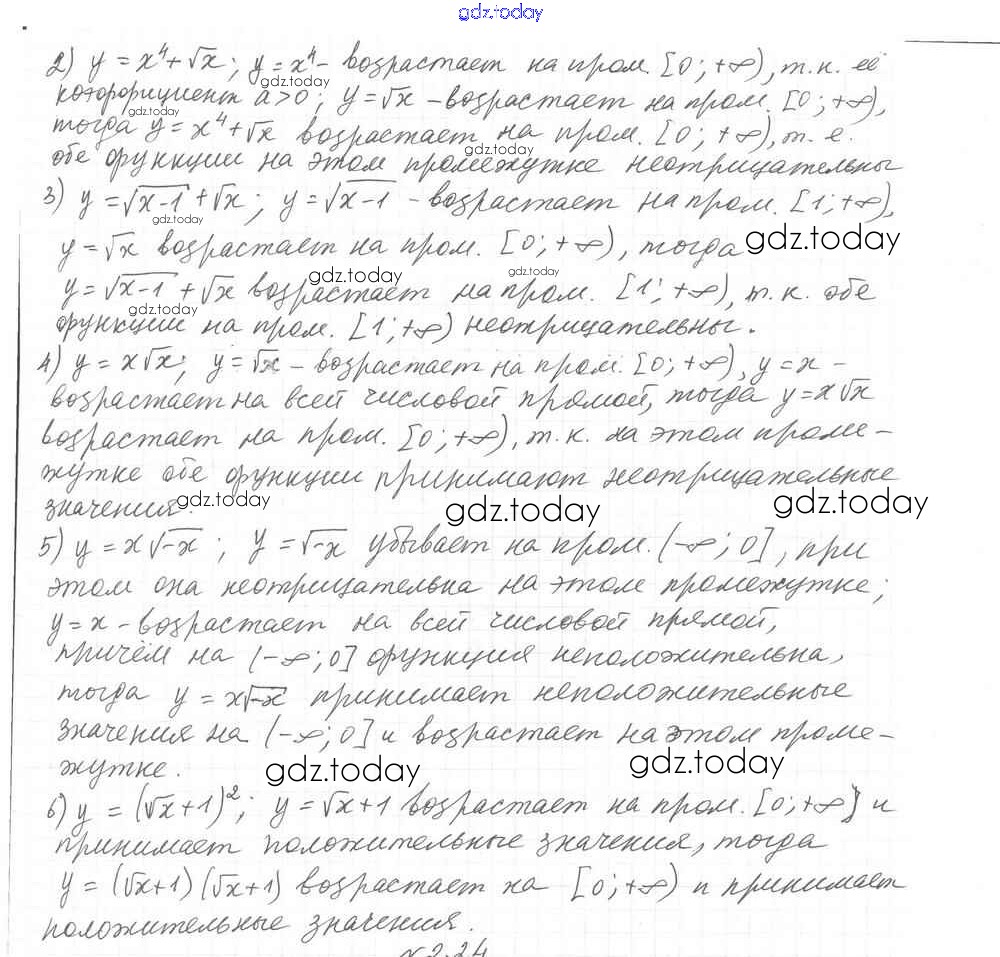 gdz.today
2) y = x⁴ + √x; y = x⁴ - возрастает на пром. [0; +∞), т.к. её
gdz.today
коэффициент a > 0; y = √x - возрастает на пром. [0; +∞),
gdz.today
тогда y = x⁴ + √x возрастает на пром. [0; +∞), т.е.
gdz.today
обе функции на этом промежутке неотрицательны
3) y = √x-1 + √x; y = √x-1 - возрастает на пром. [1; +∞),
gdz.today
y = √x возрастает на пром. [0; +∞), тогда gdz.today
gdz.today gdz.today
y = √x-1 + √x возрастает на пром. [1; +∞), т.к. обе
gdz.today
функции на пром. [1; +∞) неотрицательны.
4) y = x√x; y = √x - возрастает на пром. [0; +∞), y = x -
возрастает на всей числовой прямой, тогда y = x√x
возрастает на пром. [0; +∞), т.к. на этом проме-
жутке обе функции принимают неотрицательные
значения. gdz.today gdz.today gdz.today
5) y = x√-x; y = √-x убывает на пром. (-∞; 0], при
этом она неотрицательна на этом промежутке;
y = x - возрастает на всей числовой прямой,
причём на (-∞; 0] функция неположительна,
тогда y = x√-x принимает неположительные
значения на (-∞; 0] и возрастает на этом проме-
жутке. gdz.today gdz.today
6) y = (√x+1)²; y = √x+1 возрастает на пром. [0; +∞) и
принимает положительные значения, тогда
y = (√x+1)(√x+1) возрастает на [0; +∞) и принимает
положительные значения.
№2.24